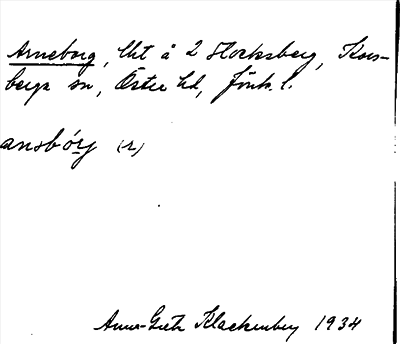 Arneborg, lht å 2 Hocksberg, Kors-
berga sn, Östra hd, Jönk. l.
ansbórj (1)
Anna-Greta Klackenberg 1934